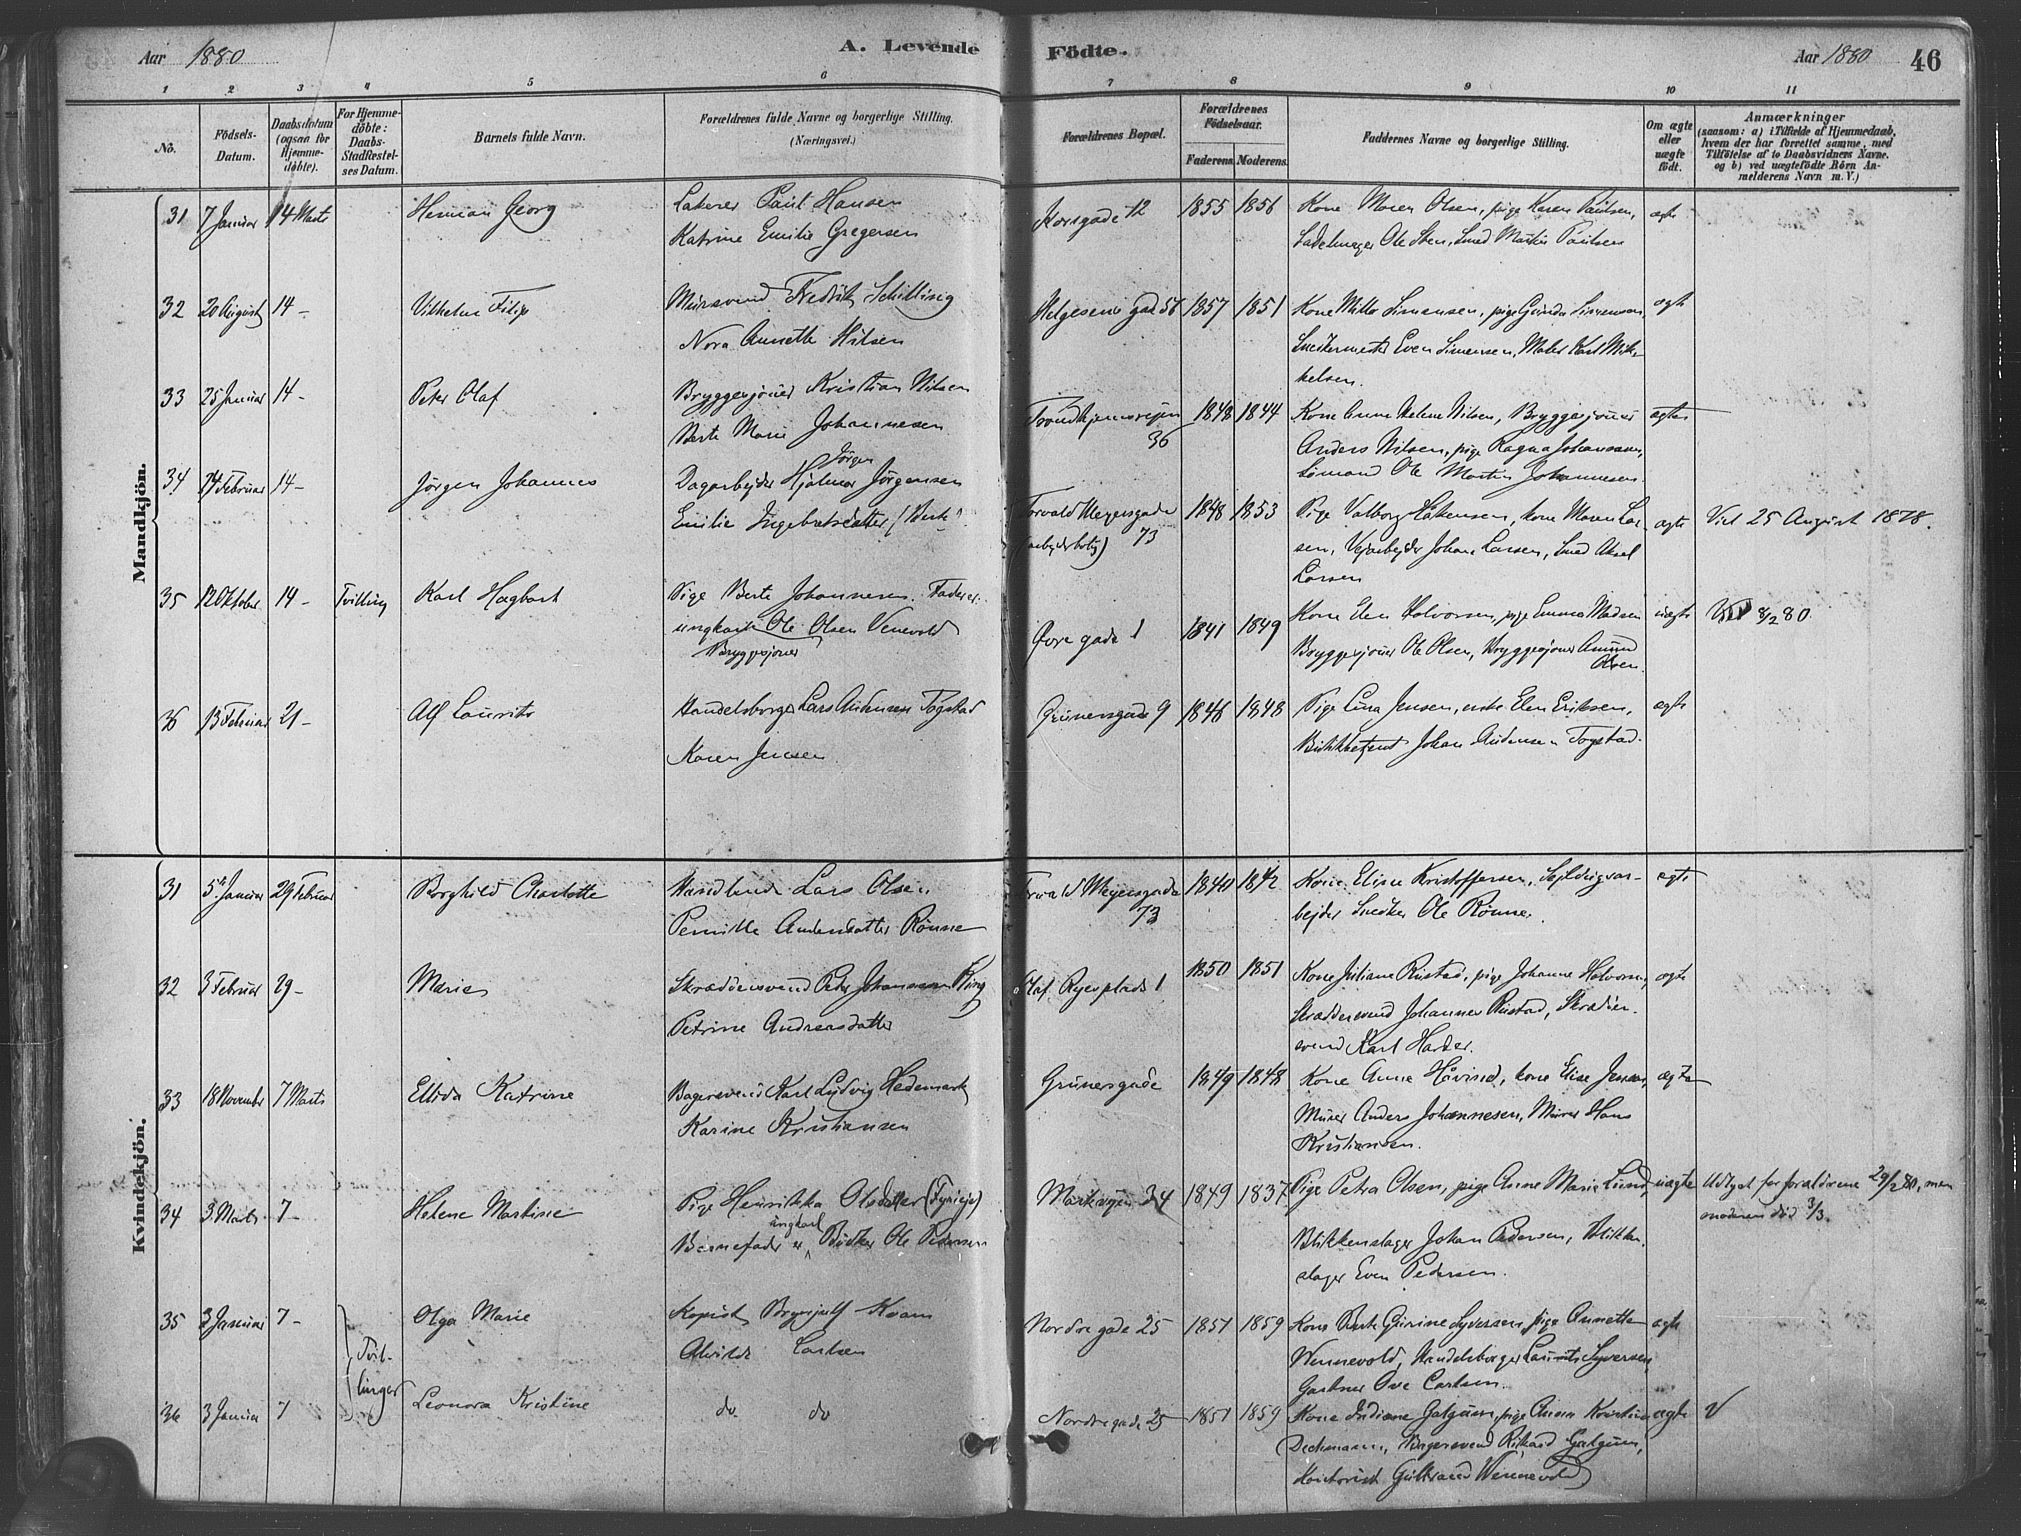 Aar 1880
A. Levende
Födte.
Aar 1880
46
1 2 3 4 5 6 7 8 9 10 11
No.
Födsels-
Datum.
Daabsdatum
(ogsaa for
Hjemme-
döbte).
For Hjemme-
döbte:
Daabs-
Stadfæstel-
ses Datum.
Barnets fulde Navn.
Forældrenes fulde Navne og borgerlige Stilling.
(Næringsvei.)
Forældrenes Bopæl.
Forældrenes
Födselsaar.
Faderens. Moderens.
Faddernes Navne og borgerlige Stilling.
Om ægte
eller
uægte
födt.
Anmærkninger
(saasom: a) i Tilfælde af Hjemmedaab,
hvem der har forrettet samme, med
Tilföielse af to Daabsvidners Navne,
og b) ved uægtefödte Börn An-
melderens Navn m. V.)
Mandkjön.
31 7 Januar 14 Marts Herman Georg Lakerer Paul Hansen
Katrine Emilie Gregersen
Korsgade 12 1855 1856 Kone Maren Olsen, pige Karen Paulsen, ægte
Sadelmager Ole Sten, Smed Martin Paulsen
32 20 August 14 – Vilhelm Filip Mursvend Fredrik Schilling
Nora Annette Nilsen
Helgesens gade 56 1857 1851 Kone Mille Simensen, pige Gunda Simensen, ægte
Snekermester Even Simensen, Maler Karl Mik-
kelsen.
33 25 Januar 14 – Peter Olaf Bryggesjouer Kristian Nilsen
Berte Marie Johannesen
Trondhjemsvejen 1848 1844 Kone Anne Helene Nilsen, Bryggesjouer ægte
36 Anders Nilsen, pige Ragna Johannesen,
Sömand Ole Martin Johannesen.
34 14 Februar 14 – Jörgen Johannes Dagarbejder Hjalmar Jörgen Jörgensen
Emilie Ingebretsdatter (Berte)
Torvald Meyersgade 1848 1853 Pige Valborg Håkensen, kone Maren Lar- ægte Viet 25 August 1878.
(arbejderbolig) 73 sen, Vejarbejder Johan Larsen, Smed Aksel
Larsen
35 12 Oktober 14 – Tvilling Karl Hagbart Pige Berte Johannesen. Fader er
ungkarl Ole Olsen Venevold
Bryggesjouer
Övre gade 1 1841 1849 Kone Elen Halvorsen, pige Emma Madsen uægte 8/2 80.
Bryggesjouer Ole Olsen, Bryggesjouer Amund
Olsen.
36 13 Februar 21 – Alf Laurits Handelsborger Lars Andersen Fogstad
Karen Jensen
Grünersgade 9 1846 1848 Pige Lina Jensen, enke Elen Eriksen, ægte
Johan Andersen Fogstad.
Kvindekjön.
31 5 Januar 29 Februar Borghild Charlotte Lars Olsen
Pernille Andersdatter Rönne
Torvald Meyersgade 1840 1842 Kone Elise Kristoffersen, ægte
73 bejder Sneker Ole Rönne.
32 3 Februar 29 – Marie Skræddersvend Peder Johannesen Ring
Petrine Andreasdatter
Olaf Ryesplads 1 1850 1851 Kone Juliane Rustad, pige Johanne Halvorsen, ægte
Skræddersvend Johannes Rustad, Skrædder-
svend Karl Harder.
33 18 November 7 Marts Ellida Katrine Bagersvend Karl Ludvig Hedemark
Karine Kristiansen
Grünersgade 1849 1848 Kone Anne Hövind, kone Elise Jensen, ægte
Murer Anders Johannesen, Murer Hans
Kristiansen.
34 3 Marts 7 – Helene Martine Pige Henrikka Olsdatter
Barnefader er ungkarl Bödker Ole Pedersen
Markvejen 34 1849 1837 Pige Petra Olsen, pige Anne Marie Lund, uægte Udlyst for foraldrene 29/2 80, men
moderen död 3/3.
Blikkenslager Johan Pedersen, Blikken-
slager Even Pedersen.
35 3 Januar 7 – Tvil- Olga Marie Kopist Brynjulf Kvam
Alvilde Carlsen
Nordre gade 25 1857 1859 Kone Berte Gurine Syversen, pige Annette ægte
Wennevold, Handelsborger Laurits Syversen,
Gartner Ove Carlsen.
36 3 Januar 7 linger Leonora Kristine do do
Nordregade 25 1857 1859 Kone Indiane Galgum, pige Anna Kristine ægte V
Deckmann, Bagersvend Rikard Galgum,
Kontorist Gulbrand Wennevold